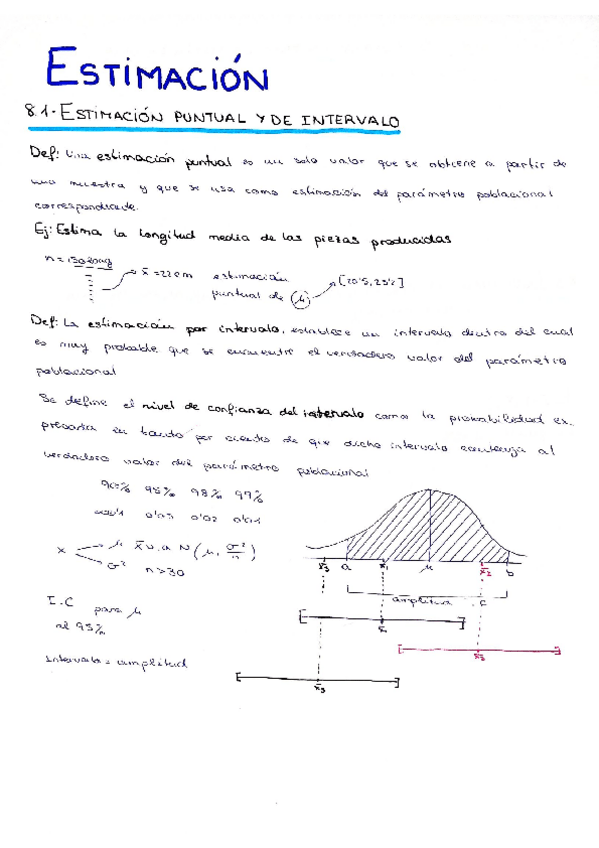 ESTIMACIÓN
8.1- ESTIMACIÓN PUNTUAL Y DE INTERVALO
Def: Una estimación puntual es un solo valor que se obtiene a partir de
una muestra y que se usa como estimación del parámetro poblacional
correspondiente.
Ej: Estima la longitud media de las piezas producidas
n =
x̄ = 22 cm estimación [20'5, 23'2]
puntual de μ
Def: La estimación por intervalo, establece un intervalo dentro del cual
es muy probable que se encuentre el verdadero valor del parámetro
poblacional
Se define el nivel de confianza del intervalo como la probabilidad ex-
presada en tanto por ciento de que dicho intervalo contenga al
verdadero valor del parámetro poblacional
90% 95% 98% 99%
0'05 0'02 0'01
x μ x̄ v.a N(μ, σ²/n)
σ² n>30
x̄3 a x̄1 μ x̄2 b
amplitud
I.C para μ
al 95%
x̄1
x̄2
Intervalo = amplitud
x̄3